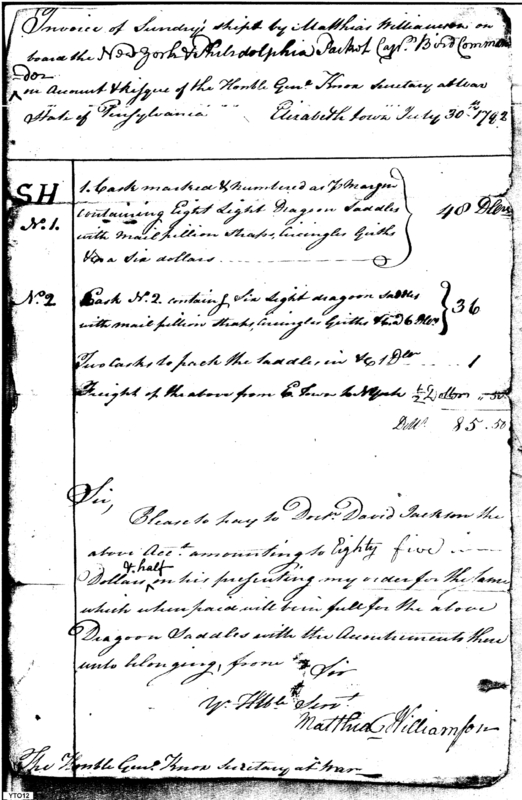 Invoice of Sundry's shipt by Matthias Williamson on
board the New York & Philadelphia Packet Capt. Bird Comman
der
on Account & risque of the Honble Genl. Knox Secretary at War
State of Pensylvania Elizabeth Town July 30th. 1792
SH
No. 1.
1. Cask marked & numbered as pr. Margin
containing Eight Light Dragoon Saddles
with mail pillion Straps, Circingles Girths
&c a Six dollars
48 Dlrs
No. 2
Cask No. 2. containg. Six Light dragoon Saddles
with mail pillion Straps, Circingles Girths &c a 6 Dlrs
36
Two Casks to pack the Saddles in &c 1 Dlr
1
Freight of the above from E. Town to N York
50
Dolls. 85.50
Sir,
Please to pay to Doctr. David Jackson the
above Acct. amounting to Eighty five
& half
Dollars on his presenting my order for the same
which when paid will be in full for the above
Dragoon Saddles with the Accoutrements there
unto belonging, from Sir
Yr. Hble Servt.
Matthias Williamson
The Honble Genl. Knox Secretary at War
YTO12